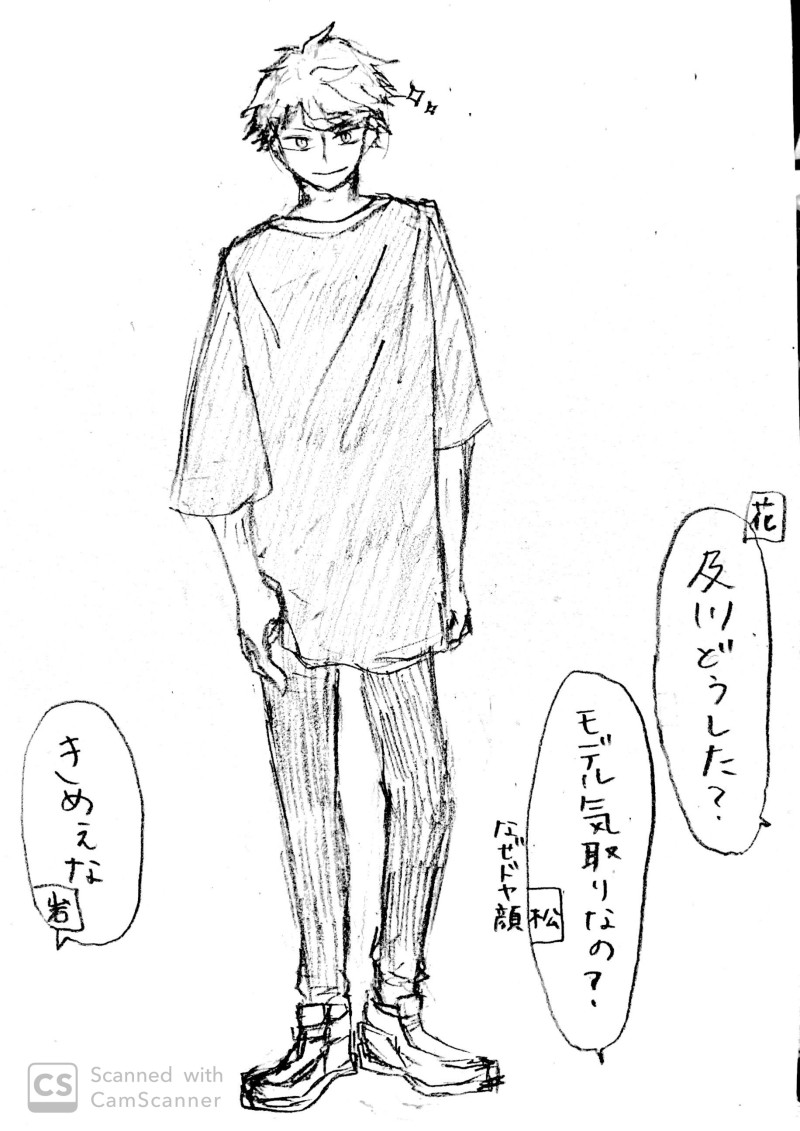 花
及川どうした?
モデル気取りなの?
松
なぜドヤ顔
きめぇな
岩
CS
Scanned with
CamScanner